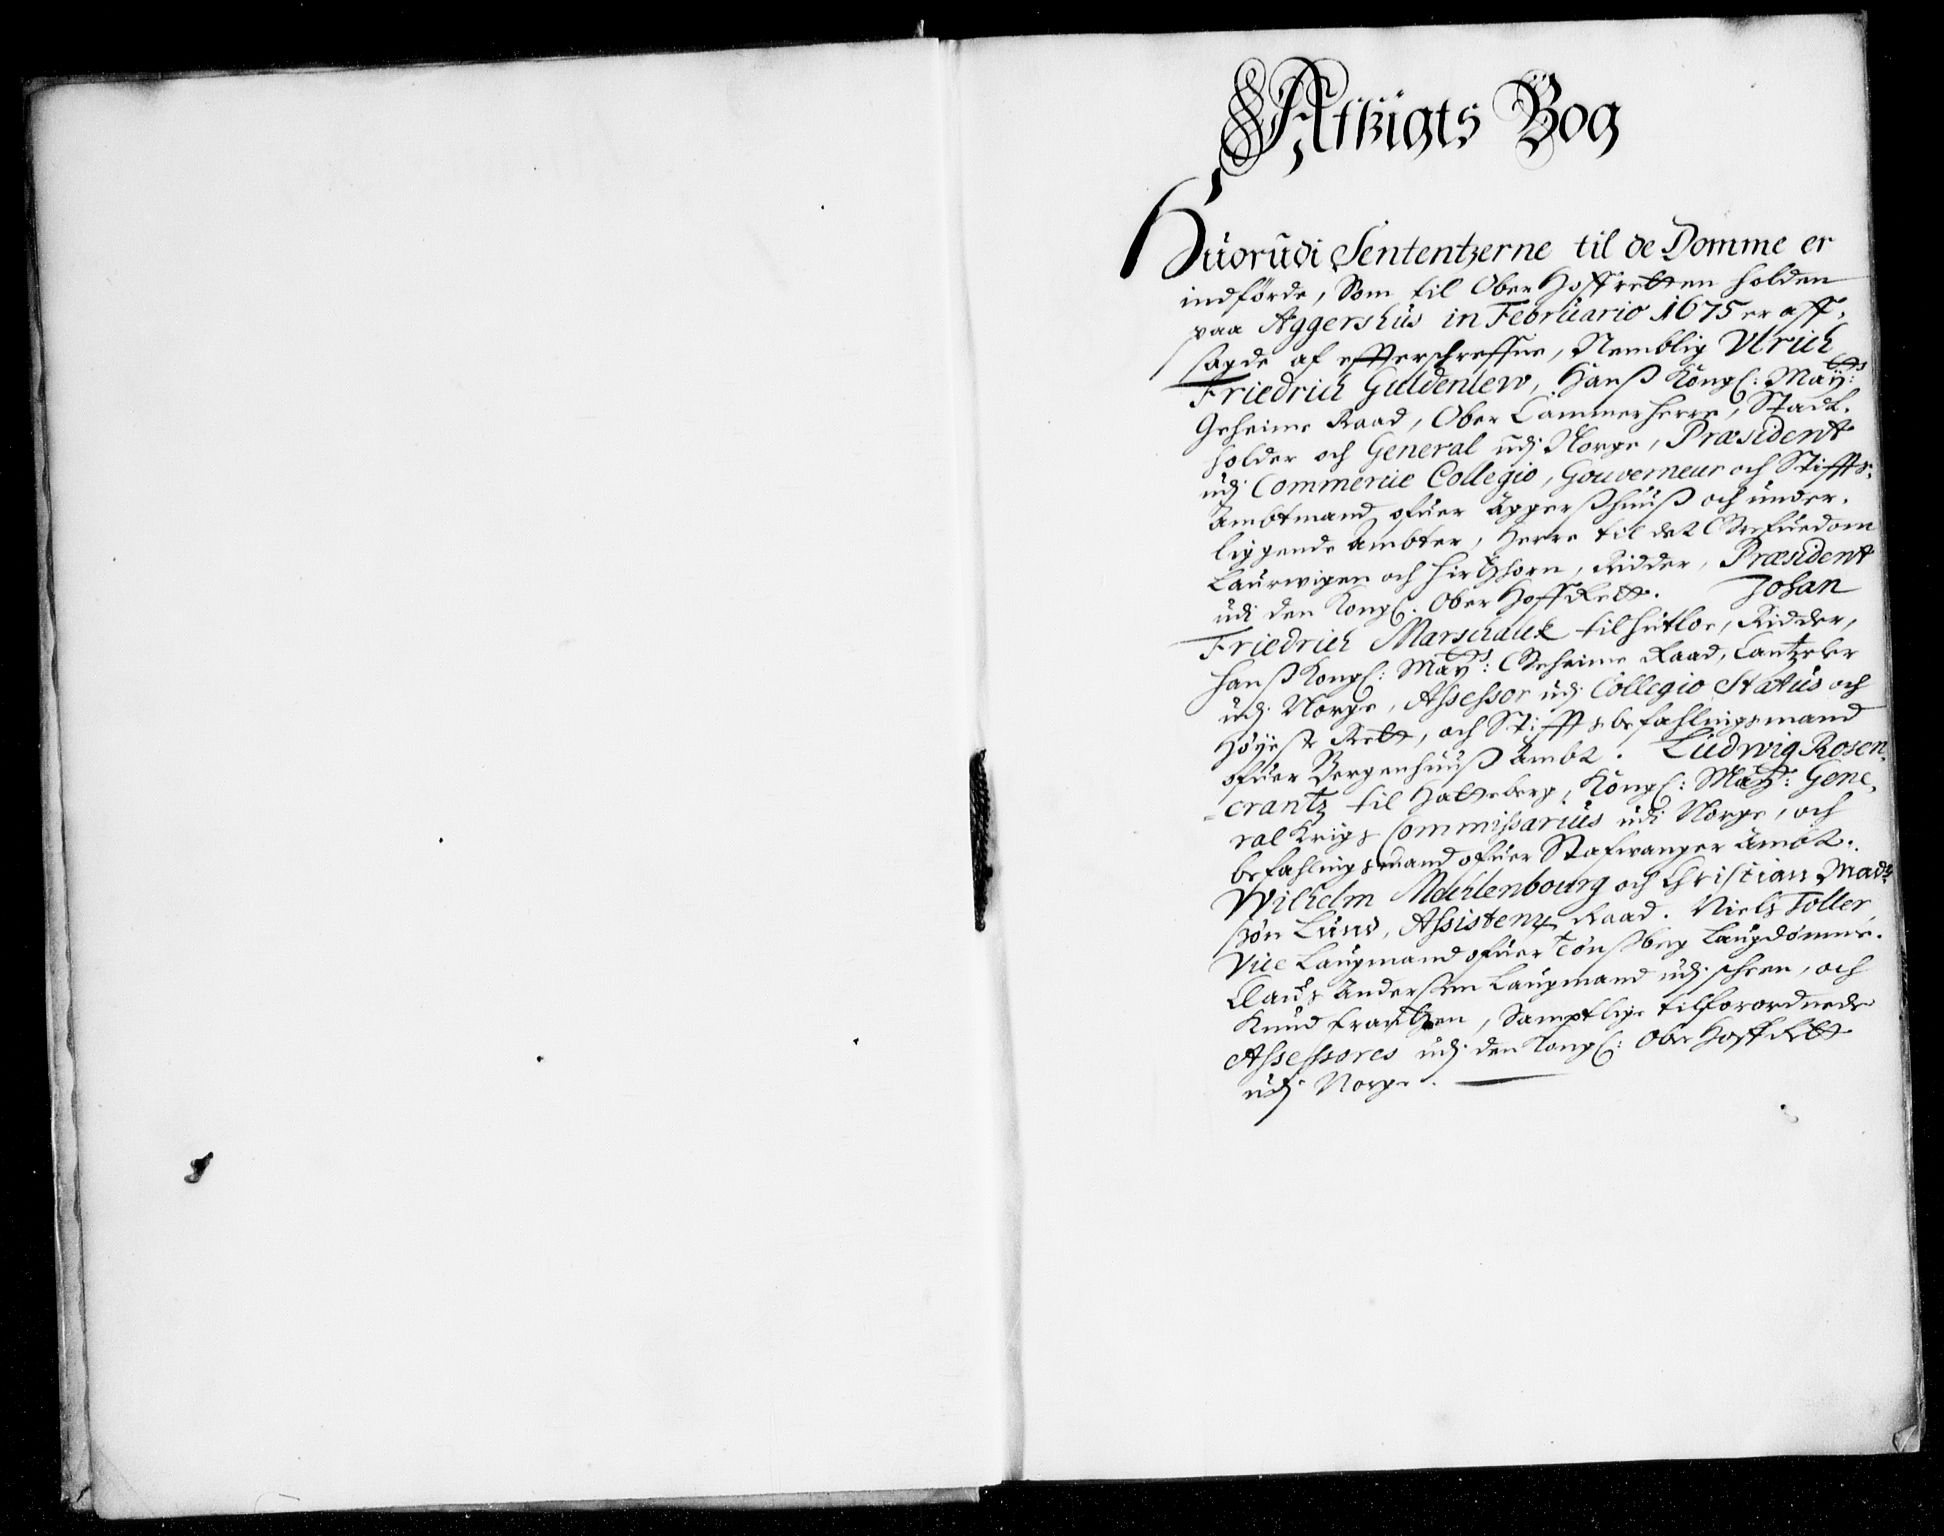 Afsigts Bog
Huorudi Sententzerne til de Domme er
indförde, Som til Ober Hoffretten holden
paa Aggershus in Februario 1675 er aff-
sagde af effterschreffne, Nemblig Vlrich
Friedrich Guldenlew, Hanß Kongl: Maÿ:tts
Geheime Raad, Ober Cammerherre, Stadt-
holder och General udj Norge, Præsident
udj Commercie Collegio, Gouverneur och Stiffts-
Ambtmand ofuer Aggerßhuuß och under-
liggende Ambter, Herre til det Grefuedom
Laurwigen och Hirtzhorn, Ridder, Præsident
udi den Kongl. Ober Hoff Rett. Johan
Friedrich Marschalck til Hutloe, Ridder,
Hanß Kongl: Maÿtts: Geheime Raad, Cantzeler
udj Norge, Assessor udj Collegio Status och
Höÿeste Rett, och Stifftsbefahlingsmand
ofuer Bergenhuuß Ambt. Ludwig Rosen-
crantz til Hatteberg, Kongl: Maytt: Gene-
ral Krigs Commissarius udi Norge, och
befahlingsmand ofuer Stafwanger Ambt.
Wilhelm Mechlenbourg och Christian Mad-
sön Lund, Assistentz Raad. Niels Toller
Vice Laugmand ofuer Tönßberg Laugdömme.
Clauß Anderßen Laugmand udj Scheen, och
Knud Frantzen, Samptlige tilforordnede
Assessores udj den Kongl: Ober Hoff Rett
udj Norge.